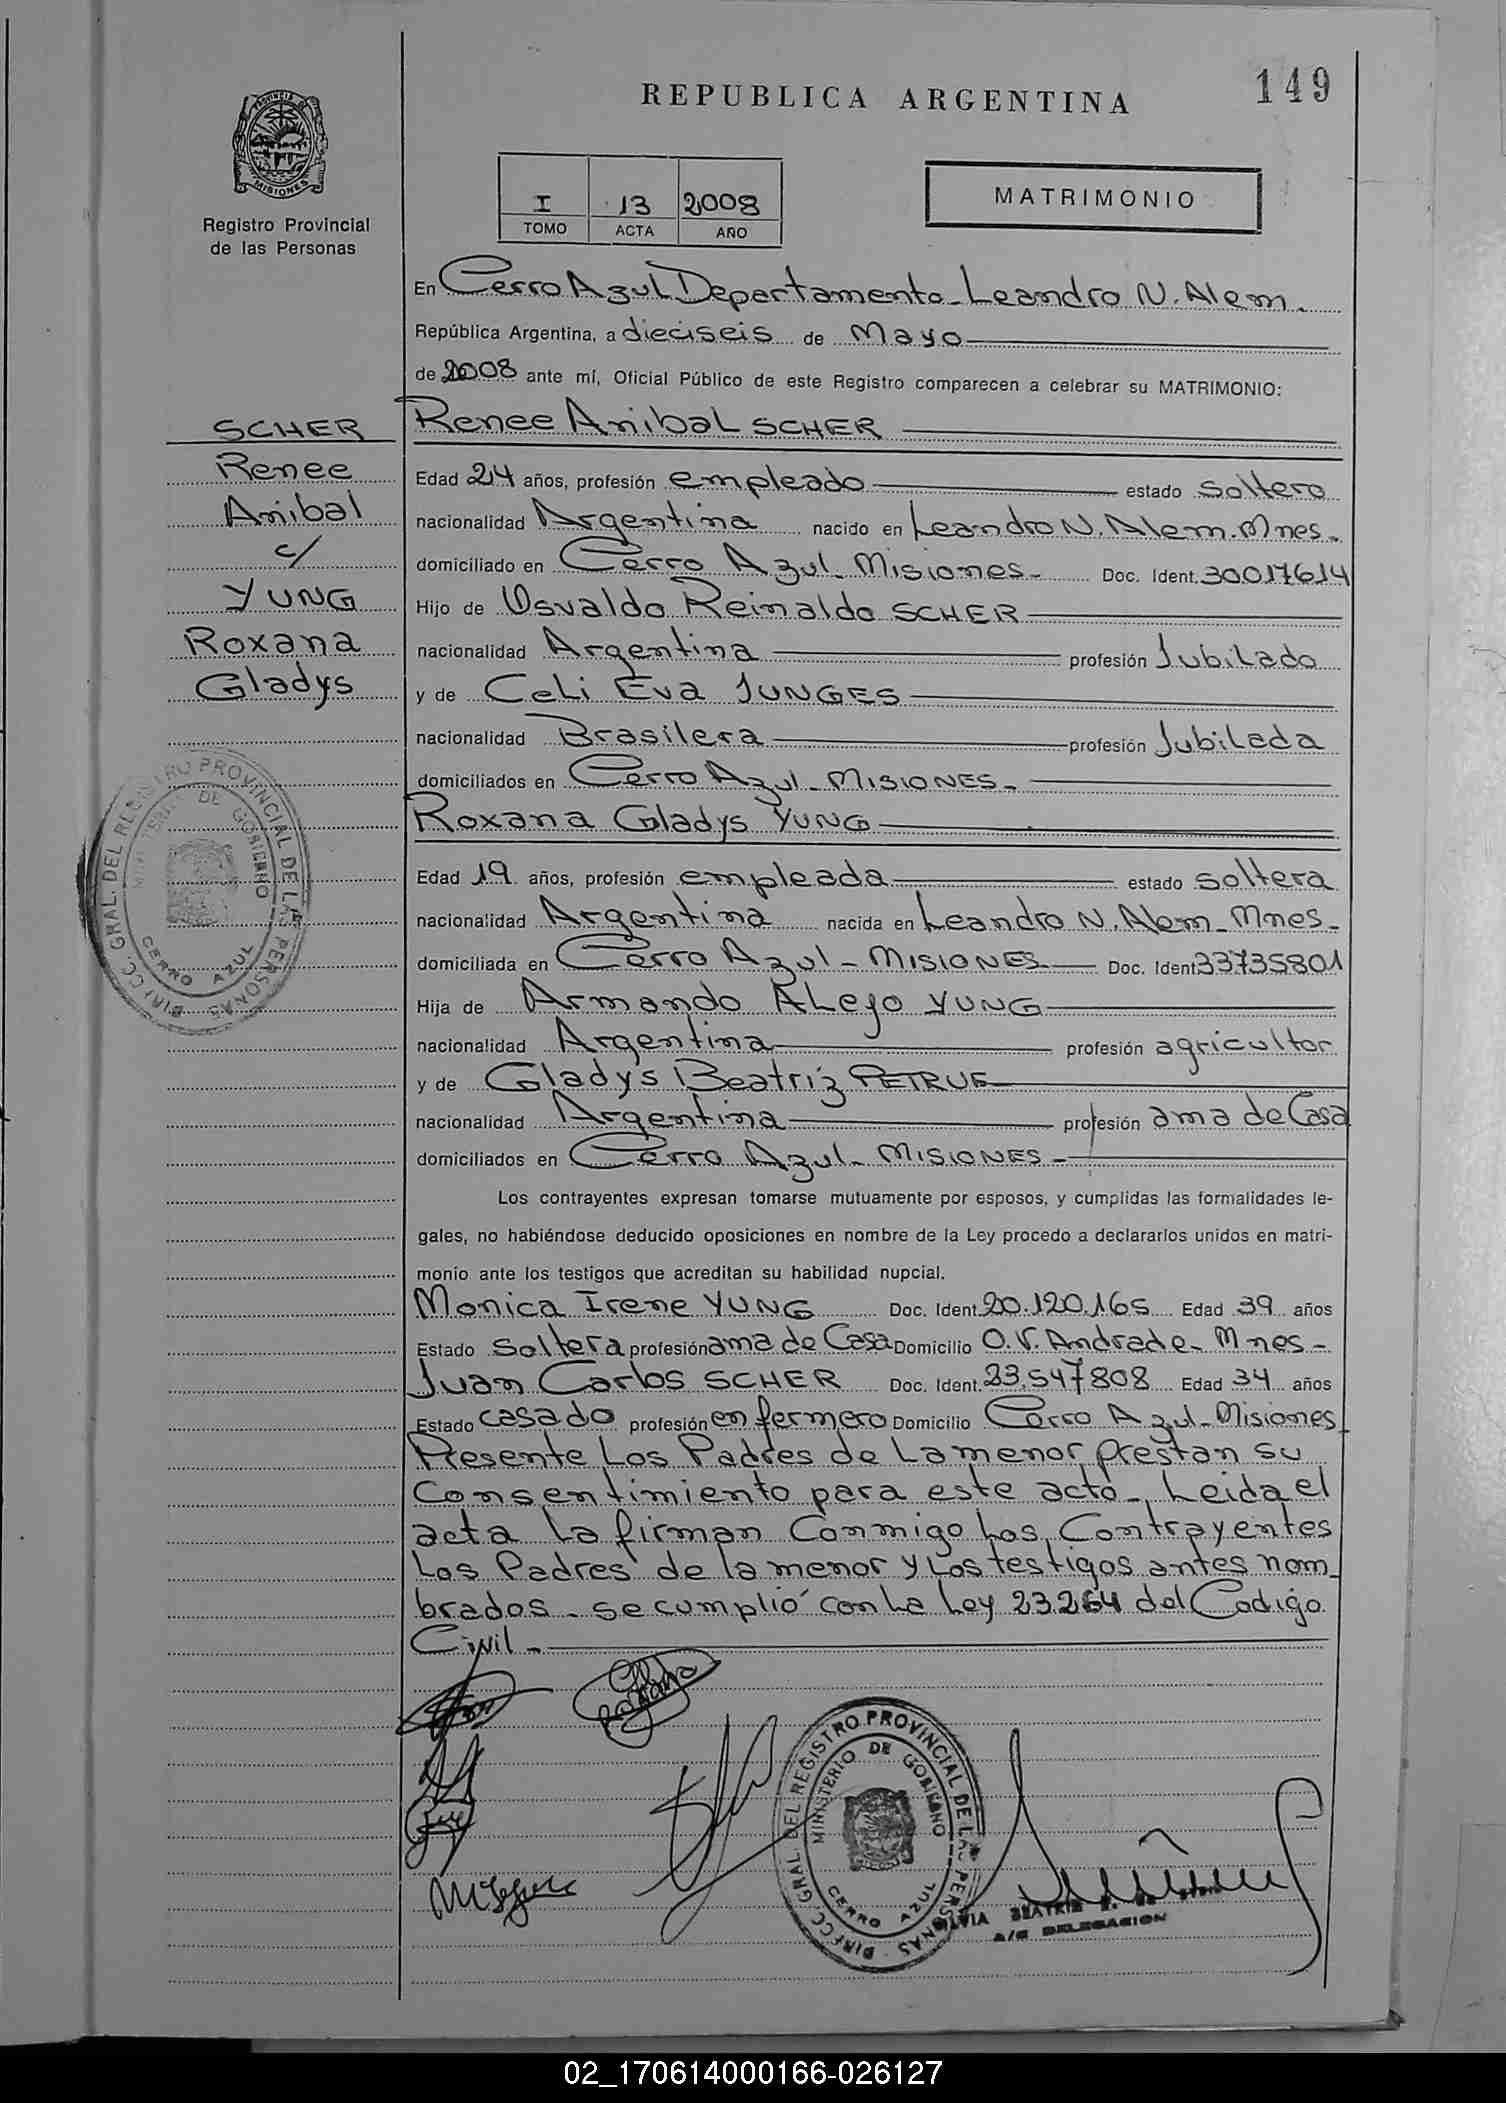 149
REPUBLICA ARGENTINA
PROVINCIA DE
MISIONES
Registro Provincial
de las Personas
I 13 2008
TOMO ACTA AÑO
MATRIMONIO
En Cerro Azul Departamento - Leandro N. Alem.
República Argentina, a dieciseis de Mayo
de 2008 ante mí, Oficial Público de este Registro comparecen a celebrar su MATRIMONIO:
SCHER
Renee
Anibal
c/
YUNG
Roxana
Gladys
Renee Anibal SCHER
Edad 24 años, profesión empleado estado soltero
nacionalidad Argentina nacido en Leandro N. Alem. Mnes.
domiciliado en Cerro Azul - Misiones - Doc. Ident. 30017614
Hijo de Osvaldo Reinaldo SCHER
nacionalidad Argentina profesión Jubilado
y de Celi Eva JUNGES
nacionalidad Brasilera profesión Jubilada
domiciliados en Cerro Azul - MISIONES -
Roxana Gladys YUNG
Edad 19 años, profesión empleada estado soltera
nacionalidad Argentina nacida en Leandro N. Alem - Mnes -
domiciliada en Cerro Azul - MISIONES Doc. Ident. 33735801
Hija de Armando Alejo YUNG
nacionalidad Argentina profesión agricultor
y de Gladys Beatriz
nacionalidad Argentina profesión ama de Casa
domiciliados en Cerro Azul - MISIONES -
Los contrayentes expresan tomarse mutuamente por esposos, y cumplidas las formalidades le-
gales, no habiéndose deducido oposiciones en nombre de la Ley procedo a declararlos unidos en matri-
monio ante los testigos que acreditan su habilidad nupcial.
Monica Irene YUNG Doc. Ident. 20.120.165 Edad 39 años
Estado soltera profesión ama de Casa Domicilio O.V. Andrade - Mnes -
Juan Carlos SCHER Doc. Ident. 23.547808 Edad 34 años
Estado casado profesión enfermero Domicilio Cerro Azul - Misiones
Presente Los Padres de La menor prestan su
Consentimiento para este acto -, Leida el
acta La firman Conmigo Los Contrayentes
Los Padres de la menor y Los testigos antes nom
brados - se cumplió con La Ley 23.264 del Codigo
Civil -
DIRECC. GRAL. DEL REGISTRO PROVINCIAL DE LAS PERSONAS
MINISTERIO DE GOBIERNO
CERRO AZUL
DIRECC. GRAL. DEL REGISTRO PROVINCIAL DE LAS PERSONAS
MINISTERIO DE GOBIERNO
CERRO AZUL
SILVIA BEATRIZ
A/C DELEGACION
02_170614000166-026127